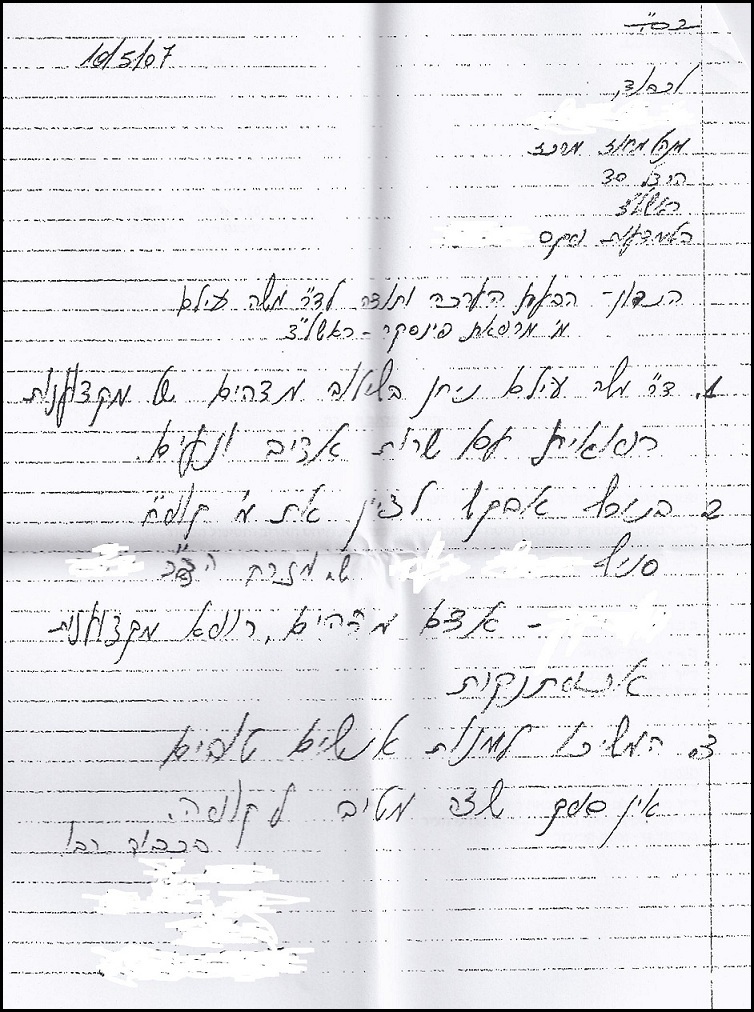 בס"ד
10/5/07
לכבוד,
מנהל מחוז מרכז
הרצל 30
ראשל"צ
באמצעות פקס
הנדון- הבעת הערכה ותודה לד"ר משה עילם
מ' מרפאת פינסקר - ראשל"צ
1. ד"ר משה עילם ניחן בשילוב מדהים של מקצוענות
רפואית עם שרות אדיב ונעים.
2. בנוסף אבקש לציין את מ' קופ"ח
סניף של מזרח העיר
- אדם מדהים, רופא מקצוענות
3. המשיכו למנות אנשים טובים
אין ספק שזה מטיב לקופה.
בכבוד רב